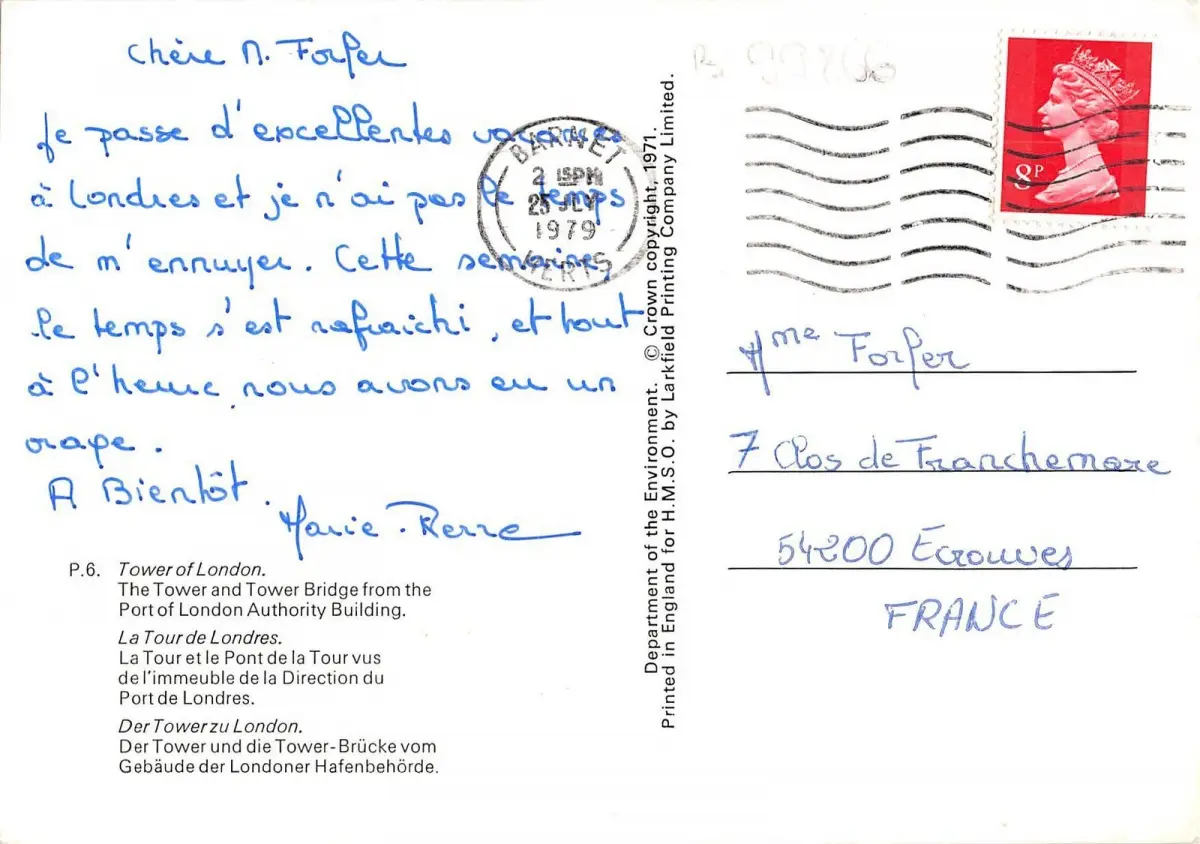 Chère M. Forfer
Je passe d'excellentes vacances
à Londres et je n'ai pas le temps
de m'ennuyer. Cette semaine,
le temps s'est rafraichi, et tout
à l'heure, nous avons eu un
orage.
A Bientôt.
Marie-Pierre
P.6. Tower of London.
The Tower and Tower Bridge from the
Port of London Authority Building.
La Tour de Londres.
La Tour et le Pont de la Tour vus
de l'immeuble de la Direction du
Port de Londres.
Der Tower zu London.
Der Tower und die Tower-Brücke vom
Gebäude der Londoner Hafenbehörde.
BARNET
2 15PM
25 JLY
1979
HERTS
Department of the Environment. © Crown copyright, 1971.
Printed in England for H.M.S.O. by Larkfield Printing Company Limited.
8P
Mme Forfer
7 Clos de Franchemare
54200 Écrouves
FRANCE